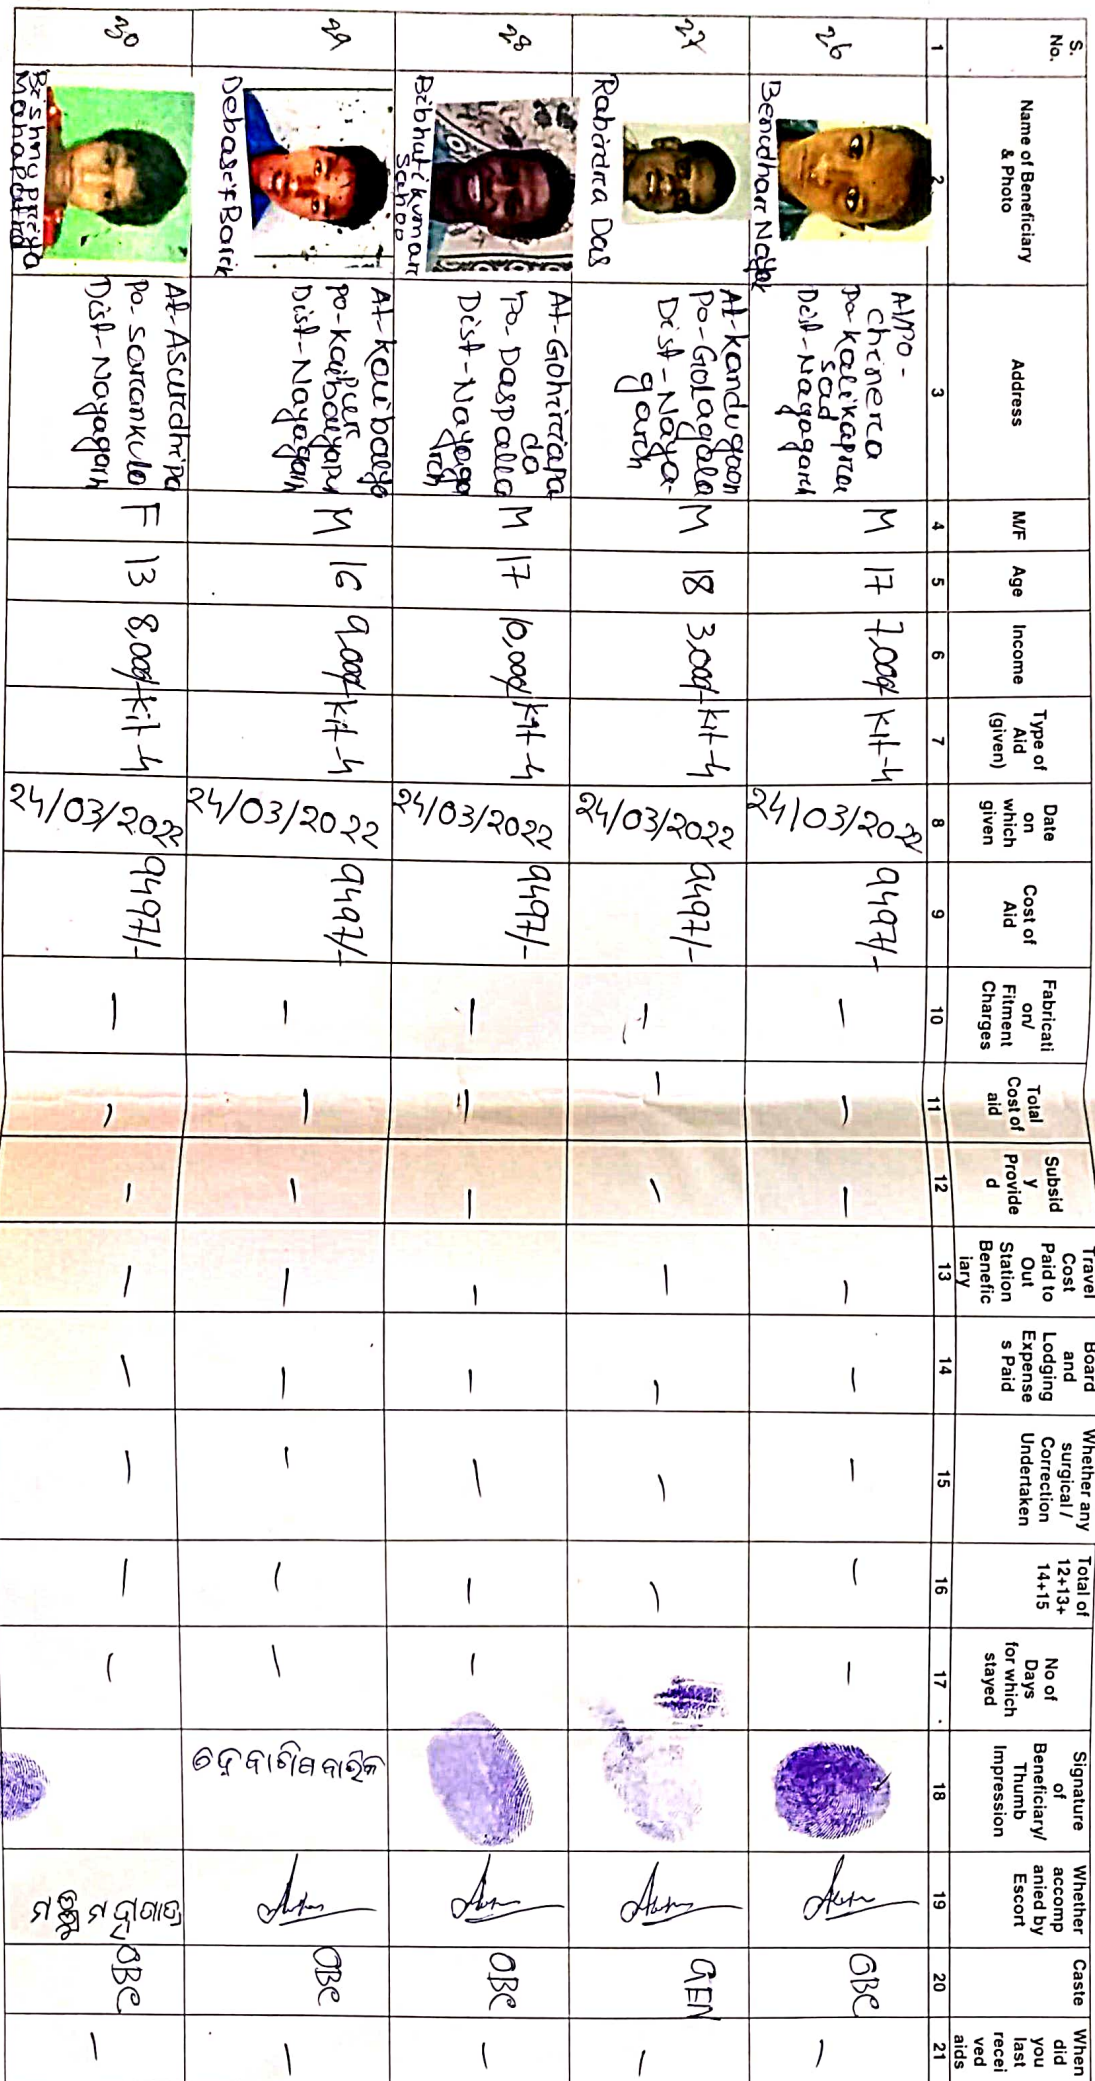 S. No.
Name of Beneficiary & Photo
Address
M/F
Age
Income
Type of Aid (given)
Date on which given
Cost of Aid
Fabricati on/ Fitment Charges
Total Cost of aid
Subsid y Provide d
Travel Cost Paid to Out Station Benefic iary
Board and Lodging Expense s Paid
Whether any surgical / Correction Undertaken
Total of 12+13+ 14+15
No of Days for which stayed
Signature of Beneficiary/ Thumb Impression
Whether accomp anied by Escort
Caste
When did you last recei ved aids
1 2 3 4 5 6 7 8 9 10 11 12 13 14 15 16 17 18 19 20 21
26
Benudhar Nayak
At/PO-
Chinerca
Po-kalikapra
sad
Dist-Nayagarh
M 17 7,000/- kit-4 24/03/2022 9497/- — — — — — — — — OBC —
27
Rabindra Das
At-kandugaon
Po-Golagala
Dist-Naya-
garh
M 18 3,000/- kit-4 24/03/2022 9497/- — — — — — — — GEN —
28
Bibhuti kumar
Sahoo
At-Gohiriapa
da
Po-Daspalla
Dist-Nayaga
rh
M 17 10,000/- kit-4 24/03/2022 9497/- — = — — — — — — OBC —
29
Debasis Barik
At-kaibalya
pur
Po-kaibalyapur
Dist-Nayagarh
M 16 9,000/- kit-4 24/03/2022 9497/- — — — — — — — — ଦେବାଶିଷ ବାରିକ OBC —
30
Bishnu priya
Mahapatra
At-Asurdhipa
Po-Sarankulo
Dist-Nayagarh
F 13 8,000/- kit-4 24/03/2022 9497/- — — — — — — — — OBC —